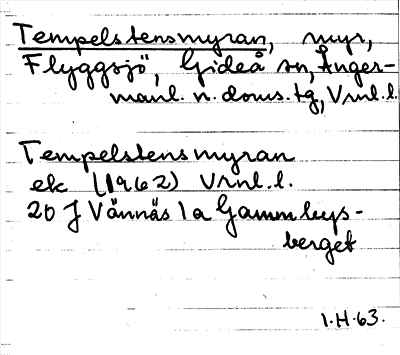 Tempelstensmyran, myr,
Flyggsjö, Gideå sn, Ånger-
manl. n. doms. tg, Vrnl. l.
Tempelstensmyran
ek (1962) Vrnl. l.
20 J Vännäs 1a Gammbys-
berget
1.H.63.